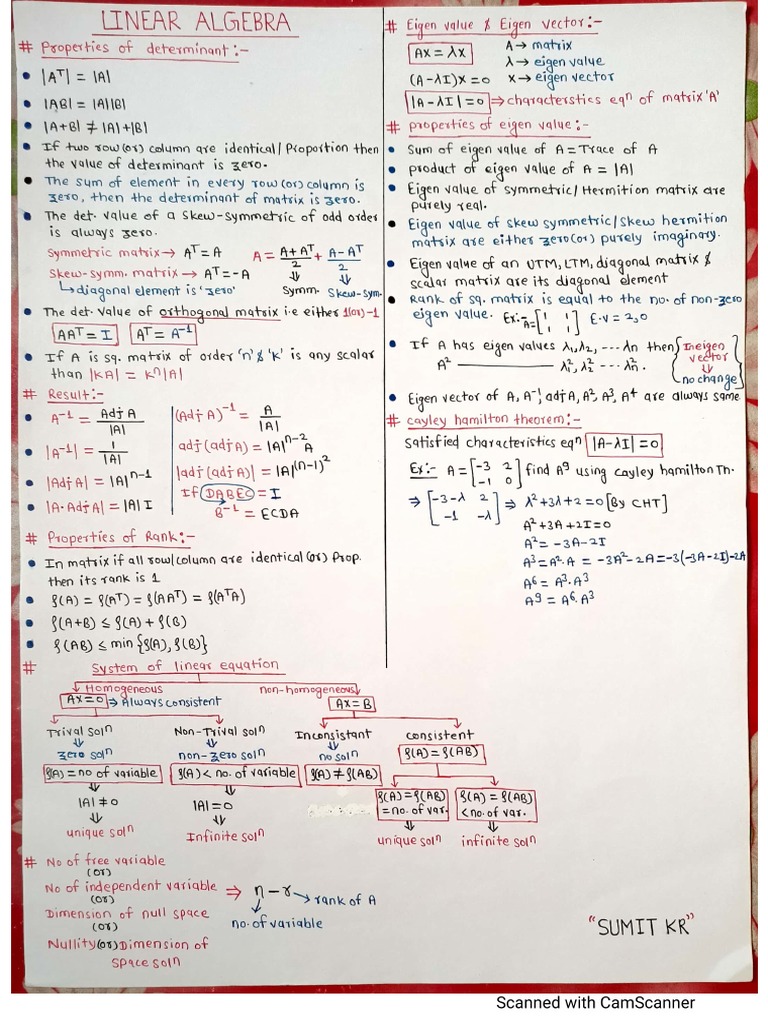 LINEAR ALGEBRA
# Properties of determinant:-
• |Aᵀ| = |A|
• |AB| = |A||B|
• |A+B| ≠ |A|+|B|
• If two row(or) column are identical/Proportion then
the value of determinant is zero.
• The sum of element in every row(or) column is
zero, then the determinant of matrix is zero.
• The det. value of a skew-symmetric of odd order
is always zero.
Symmetric matrix → Aᵀ = A A = (A+Aᵀ)/2 + (A-Aᵀ)/2
Skew-symm. matrix → Aᵀ = -A ⇓ ⇓
↳ diagonal element is 'zero' Symm. Skew-sym.
• The det. value of orthogonal matrix i.e either 1(or)-1
AAᵀ = I Aᵀ = A⁻¹
• If A is sq. matrix of order 'n' & 'k' is any scalar
than |KA| = Kⁿ|A|
# Result:-
• A⁻¹ = Adj A / |A|
• |A⁻¹| = 1 / |A|
• |Adj A| = |A|ⁿ⁻¹
• |A·Adj A| = |A| I
(Adj A)⁻¹ = A / |A|
adj(adj A) = |A|ⁿ⁻² A
|adj(adj A)| = |A|^(n-1)²
If DABEC = I
B⁻¹ = ECDA
# Properties of Rank:-
• In matrix if all row/column are identical (or) Prop.
then its rank is 1
• ρ(A) = ρ(Aᵀ) = ρ(AAᵀ) = ρ(AᵀA)
• ρ(A+B) ≤ ρ(A) + ρ(B)
• ρ(AB) ≤ min{ρ(A), ρ(B)}
# Eigen value & Eigen vector:-
AX = λX A → matrix
λ → eigen value
(A-λI)X = 0 X → eigen vector
|A-λI| = 0 ⇒ characterstics eqⁿ of matrix 'A'
# properties of eigen value:-
• Sum of eigen value of A = Trace of A
• product of eigen value of A = |A|
• Eigen value of symmetric/Hermition matrix are
purely real.
• Eigen value of skew symmetric/skew hermition
matrix are either zero(or) purely imaginary.
• Eigen value of an UTM, LTM, diagonal matrix &
scalar matrix are its diagonal element
• Rank of sq. matrix is equal to the no. of non-zero
eigen value. Ex:- A = [1 1; 1 1] E.v = 2,0
• If A has eigen values λ₁, λ₂, --- λn then
A² ——— λ₁², λ₂² --- λn².
In eigen
vector
⇓
no change
• Eigen vector of A, A⁻¹, adj A, A², A³, A⁴ are always same
# cayley hamilton theorem:-
satisfied characteristics eqⁿ |A-λI| = 0
Ex:- A = [-3 2; -1 0] find A⁹ using cayley hamilton Th.
⇒ [-3-λ 2; -1 -λ] ⇒ λ²+3λ+2 = 0 [By CHT]
A²+3A+2I = 0
A² = -3A-2I
A³ = A²·A = -3A²-2A = -3(-3A-2I)-2A
A⁶ = A³·A³
A⁹ = A⁶·A³
# System of linear equation
Homogeneous non-homogeneous
AX = 0 ⇒ Always consistent AX = B
Trival solⁿ Non-Trival solⁿ Inconsistant consistent
⇓ ⇓ ⇓ ρ(A) = ρ(AB)
zero solⁿ non-zero solⁿ no solⁿ
ρ(A) = no of variable ρ(A) < no. of variable ρ(A) ≠ ρ(AB)
ρ(A) = ρ(AB) ρ(A) = ρ(AB)
= no. of var. < no. of var.
⇓ ⇓
|A| ≠ 0 |A| = 0
⇓ ⇓ ⇓ ⇓
unique solⁿ Infinite solⁿ unique solⁿ infinite solⁿ
# No of free variable
(or)
No of independent variable ⇒ n - r → rank of A
(or)
Dimension of null space no. of variable
(or)
Nullity (or) Dimension of
space solⁿ
"SUMIT KR"
Scanned with CamScanner